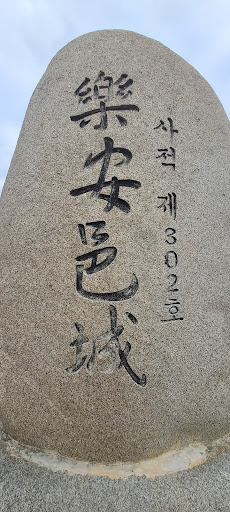 樂安邑城
사적 제302호